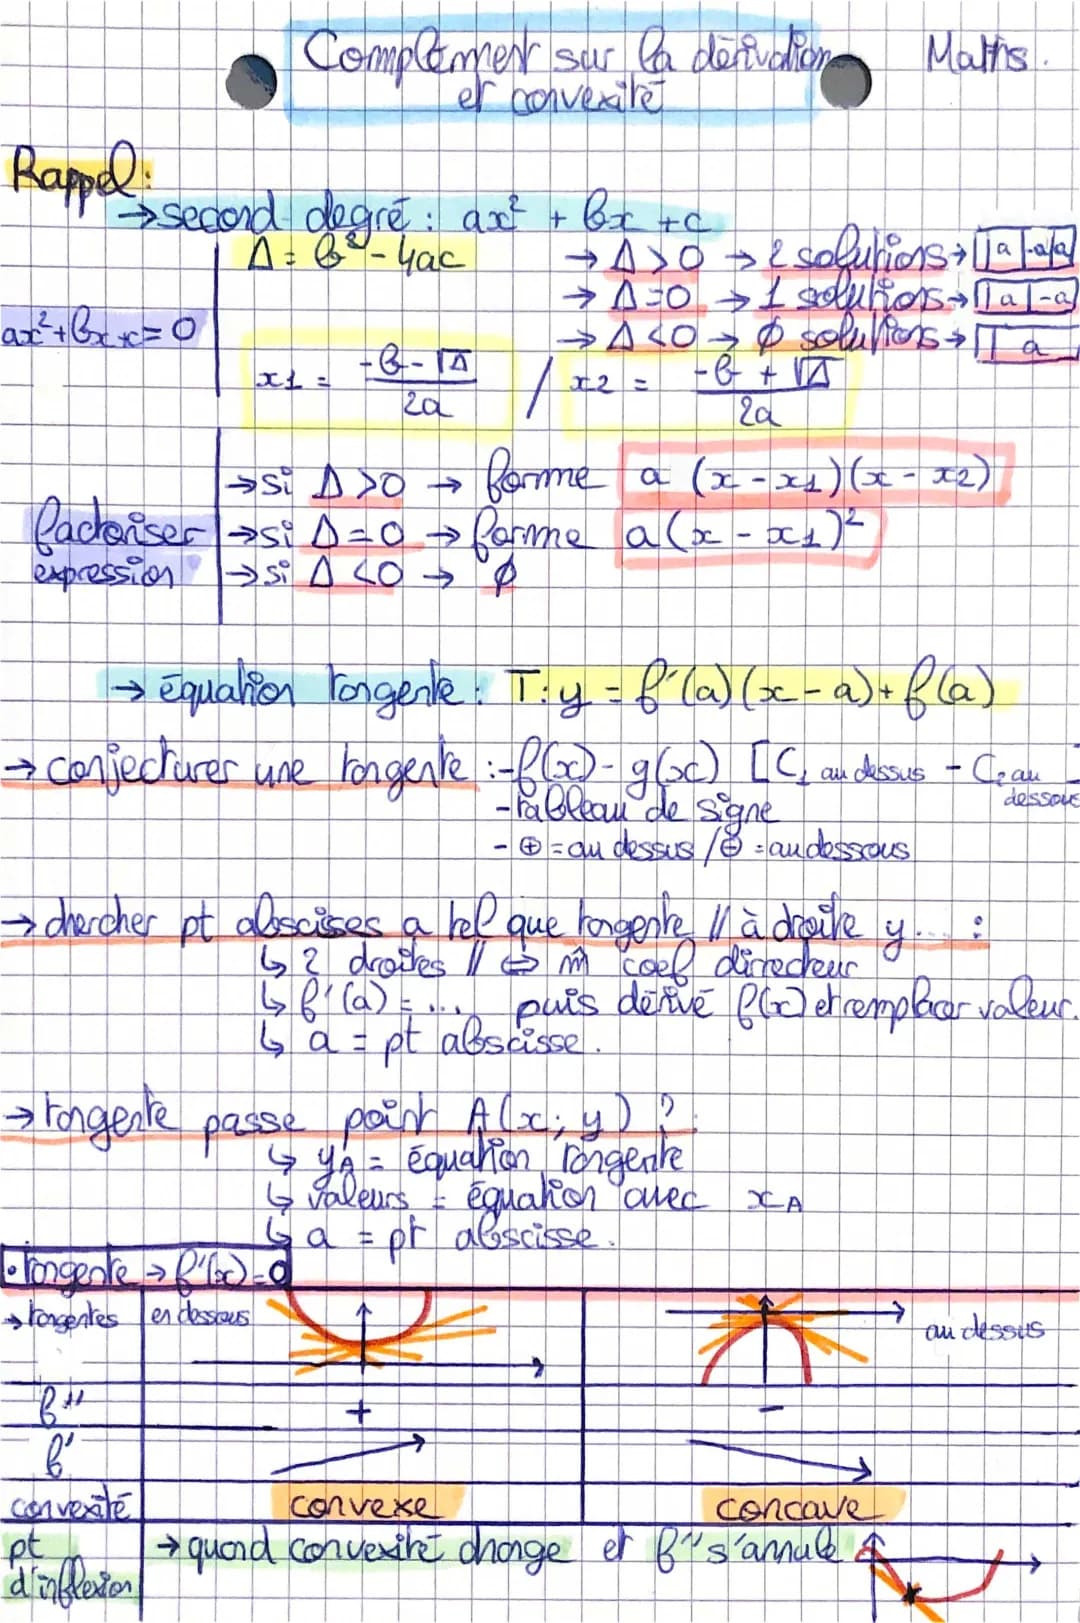 Complément sur la dérivation
et convexité
Maths.
Rappel:
→ second degré : ax² + bx + c
Δ = b² - 4ac
→ Δ > 0 → 2 solutions → | a | -a | a
→ Δ = 0 → 1 solutions → | a | -a
→ Δ < 0 → ∅ solutions → | a
ax² + bx + c = 0
x1 = (-b - √Δ)/2a / x2 = (-b + √Δ)/2a
factoriser expression
→ si Δ > 0 → forme a (x - x1)(x - x2)
→ si Δ = 0 → forme a(x - x1)²
→ si Δ < 0 → ∅
→ équation tangente : T: y = f'(a)(x - a) + f(a)
→ conjecturer une tangente : - f(x) - g(x) [C1 au dessus - C2 au dessous
- tableau de signe
- ⊕ = au dessus / ⊖ = au dessous
→ chercher pt abscisses a tel que tangente // à droite y... :
↳ 2 droites // ⇔ m̂ coef dirrecteur
↳ f'(a) = ... puis dérivé f(x) et remplacer valeur.
↳ a = pt abscisse.
→ tangente passe point A(x; y) ?
↳ yA = équation tangente
↳ valeurs = équation avec xA
↳ a = pt abscisse.
• tangente → f'(x) = 0
→ tangentes en dessous au dessus
f'' + -
f'
convexité convexe concave
pt d'inflexion → quand convexité change et f'' s'annule